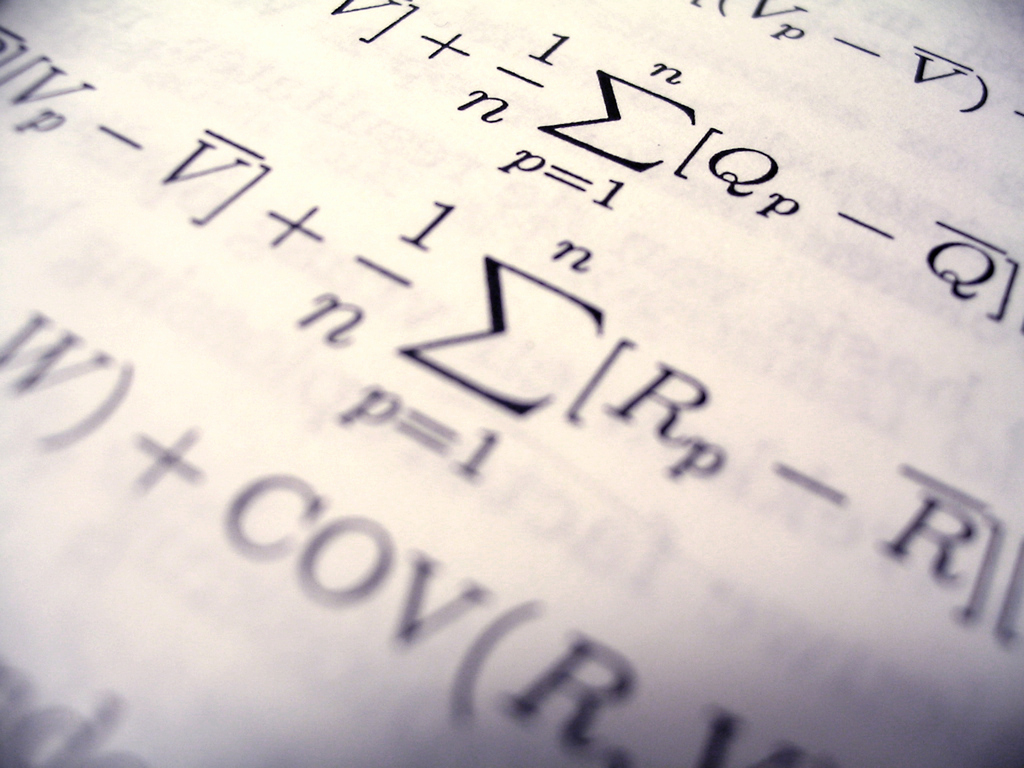 (V_p − V̄)
V̄] + 1/n ∑_{p=1}^{n} [Q_p − Q̄]
][V_p − V̄] + 1/n ∑_{p=1}^{n} [R_p − R̄][
W) + COV(R,